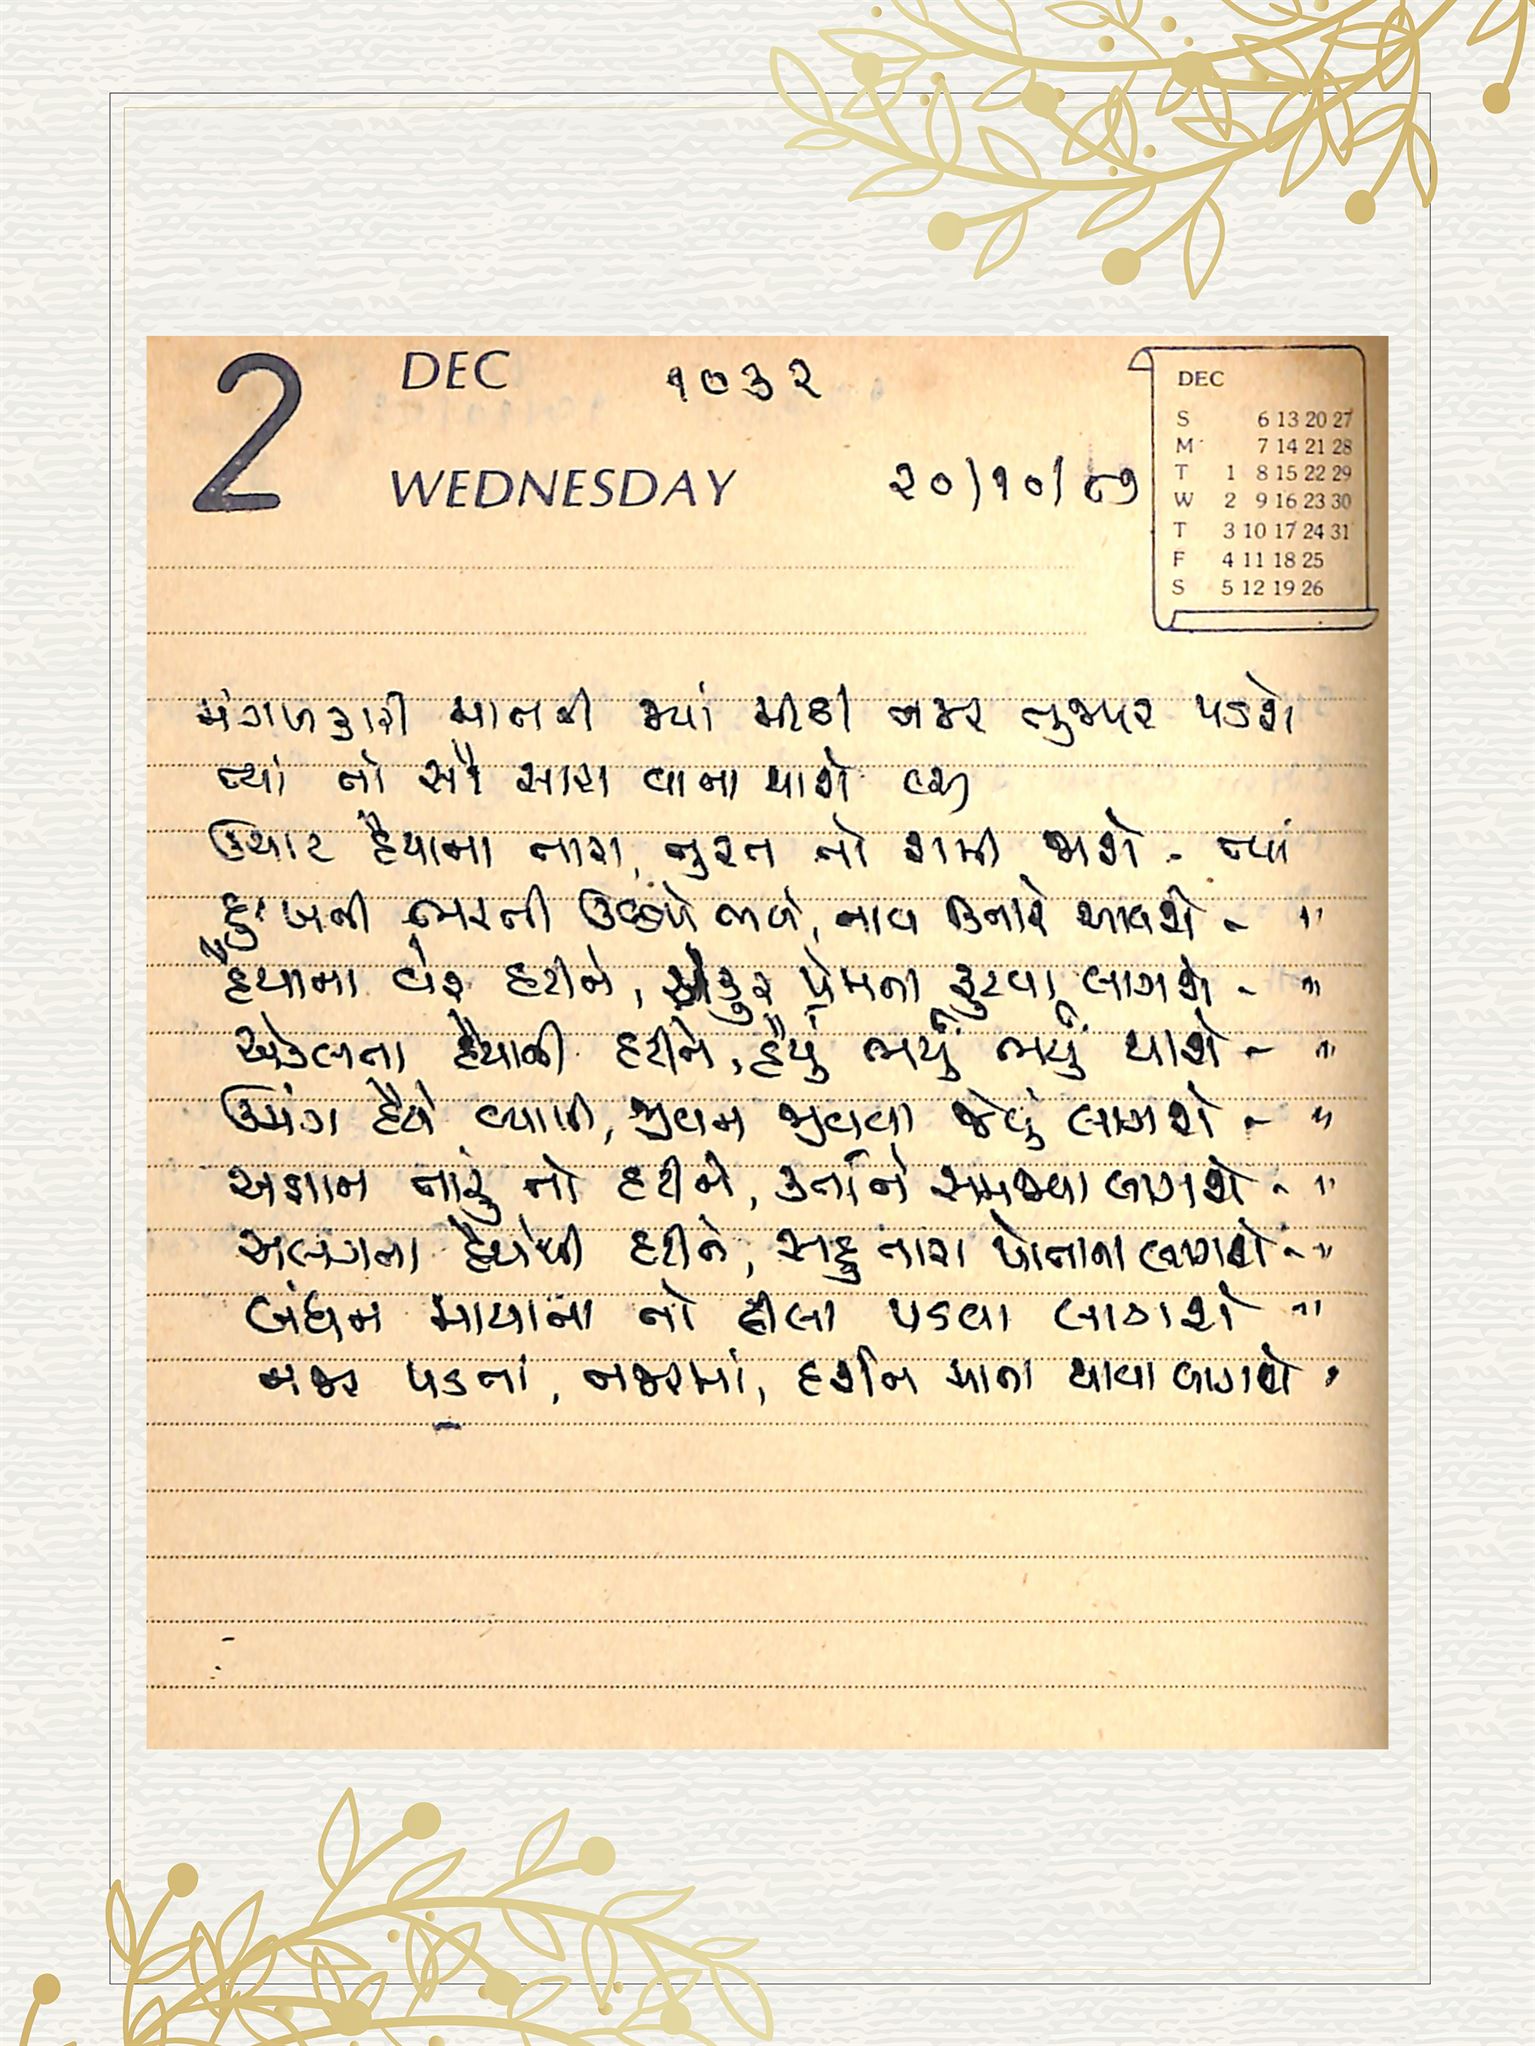 2 DEC ૧૦૩૨
WEDNESDAY ૨૦/૧૦/૮૭
DEC
S 6 13 20 27
M 7 14 21 28
T 1 8 15 22 29
W 2 9 16 23 30
T 3 10 17 24 31
F 4 11 18 25
S 5 12 19 26
મંગળકારી માતની જ્યાં મીઠી નજર તુજપર પડશે
ત્યાં તો સૌ સારા વાના થાશે
ઉચાટ હૈયાના તારા, તુરત તો શમી જાશે - ત્યાં
દુઃખની ભરતી ઉછળે ભલે, નાવ કિનારે આવશે - "
હૈયાના વેર હટીને, અંકુર પ્રેમના ફુટવા લાગશે - "
એકલતા હૈયાની હટીને, હૈયું ભર્યું ભર્યું થાશે - "
ઉમંગ હૈયે વ્યાપી, જીવન જીવવા જેવું લાગશે - "
અજ્ઞાન તારું તો હટીને, કર્તાને સમજવા લાગશે - "
અલગતા હૈયેથી હટીને, સહુ તારા પોતાના લાગશે - "
બંધન માયાના તો ઢીલા પડવા લાગશે "
નજર પડતાં, નજરમાં, દર્શન માતા થાવા લાગશે "